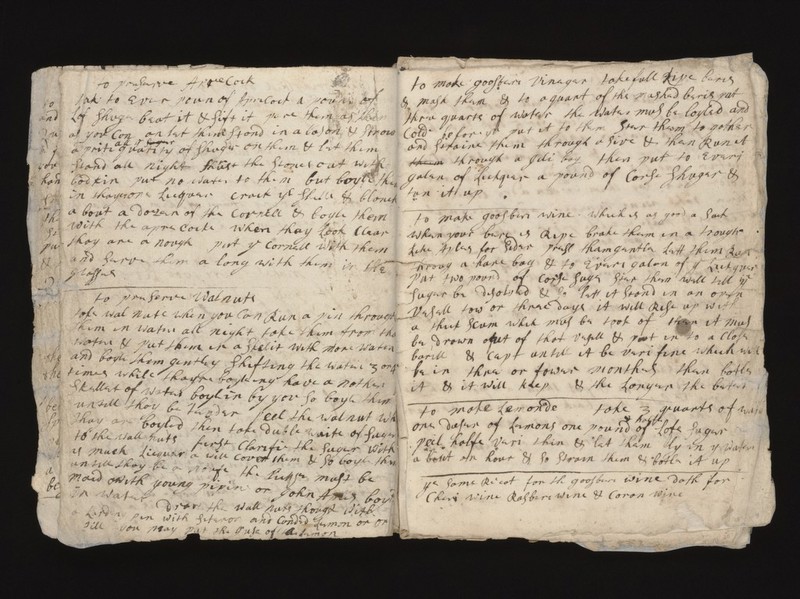 to preserve Apre Cock
take to Ever poun of Apre Cock a poun of
Lof Shuger beat it & Sift it pare them as thin
as you Con an let them Stand in a bason & Strow
a prity quantity of Shuger on them & let them
Stand all night thrust the Stones out with
bodkin put no water to them but boyle them
in thayr one Liquer Crack ye Stons & blonch
a bout a dozen of the Cornell & boyle them
with the apre Cocks when thay Look Clear
thay are a nough put ye Cornell with them
and Serve them a long with them in the
glasses
to preserve Walnuts
take wal nuts when you Can Run a pin through
them in water all night take them from tha
water & put them in a Skelit with more water
and boyle them gentley Shifting the water 3 or 4
times while thay are boyleing have a nother
Skellet of water boylin by you So boyle them
untill thay be Tender peel the walnut whe
thay are boyled then take duble waite of Sugar
to the wall nuts first Clarifi the Sugar with
as much Liquer as will Cover them & So boyle them
untill thay be a nough the Liquer must be
maid with young pipin or John Apls boyl
in water draw the wall nuts though with
a Larding pin with and Candid Lemon or or
till you may put the Juse of a Lemon
to make goosberi Vinager take full Ripe beris
& mash them & to a quart of the mashed beris put
three quarts of water the water must be boyled and
Cold before ye put it to them Stur them to gother
and Straine them through a Sive & than Run it
through a Jili bag then put to Every
galon of Licquer a pound of Corse Shuger &
tun it up
to make goosberi wine which is as good a Sort
when your beris is Ripe brake them in a trough
like Apples for Sider press tham gentle Lett them Run
throug a hare bag & to Every galon of ye Licquer
put two pound of Corse Suger Stur them well till ye
Suger be desolved & So lett it Stand in an open
Vesell tow or three days it will Rise up with
a thick Scum which must be took of then it must
be drown out of that Vesell & poot in to a Close
barill & Capt untill it be veri fine which will
be in three or fower months than botle
it & it will keep & the Longer the beter
to make Lemonde take 3 quarts of water
one dasen of Lemons one pound & half of Lofe Sugar
peil halfe Veri then & let them Ly in ye water
a bout an hour & So Strain them & botle it up
ye Same Receot for the goosberi wine doth for
Cheri wine Rasberi wine & Coron wine